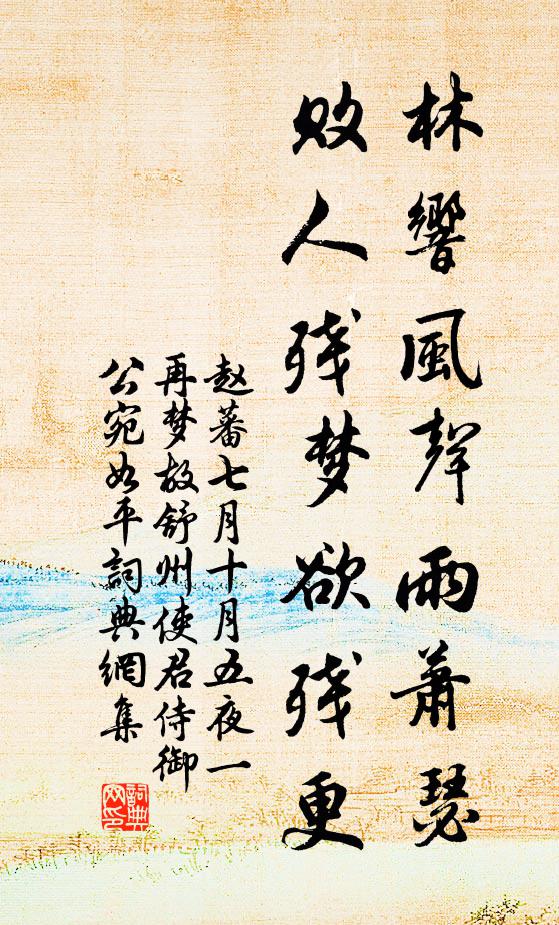 林響風聲雨蕭瑟
败人残梦欲残更
赵蕃七月十月五夜一
再梦故舒州使君侍御
公宛如平詞典網集
詞典网印